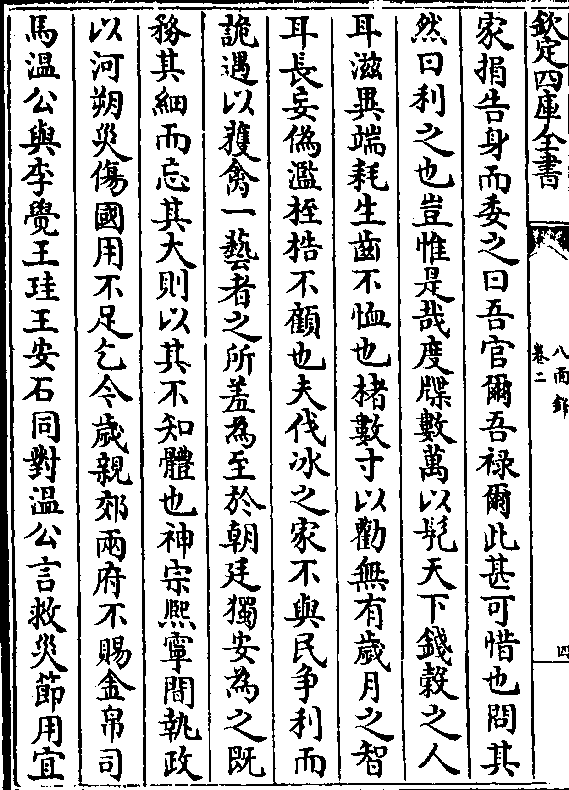 欽定四庫全書
八面鋒
卷二
四
家捐告身而委之曰吾官爾吾禄爾此甚可惜也問其
然曰利之也豈惟是哉度牒數萬以髠天下錢穀之人
耳滋異端耗生齒不恤也楮數寸以勸無有歲月之智
耳長妄偽濫桎梏不顧也夫伐冰之家不與民争利而
詭遇以獲禽一藝者之所羞為至於朝廷獨安為之既
務其細而忘其大則以其不知體也神宗熙寧間執政
以河朔災傷國用不足乞今歲親郊兩府不賜金帛司
馬温公與李覺王珪王安石同對温公言救災節用宜